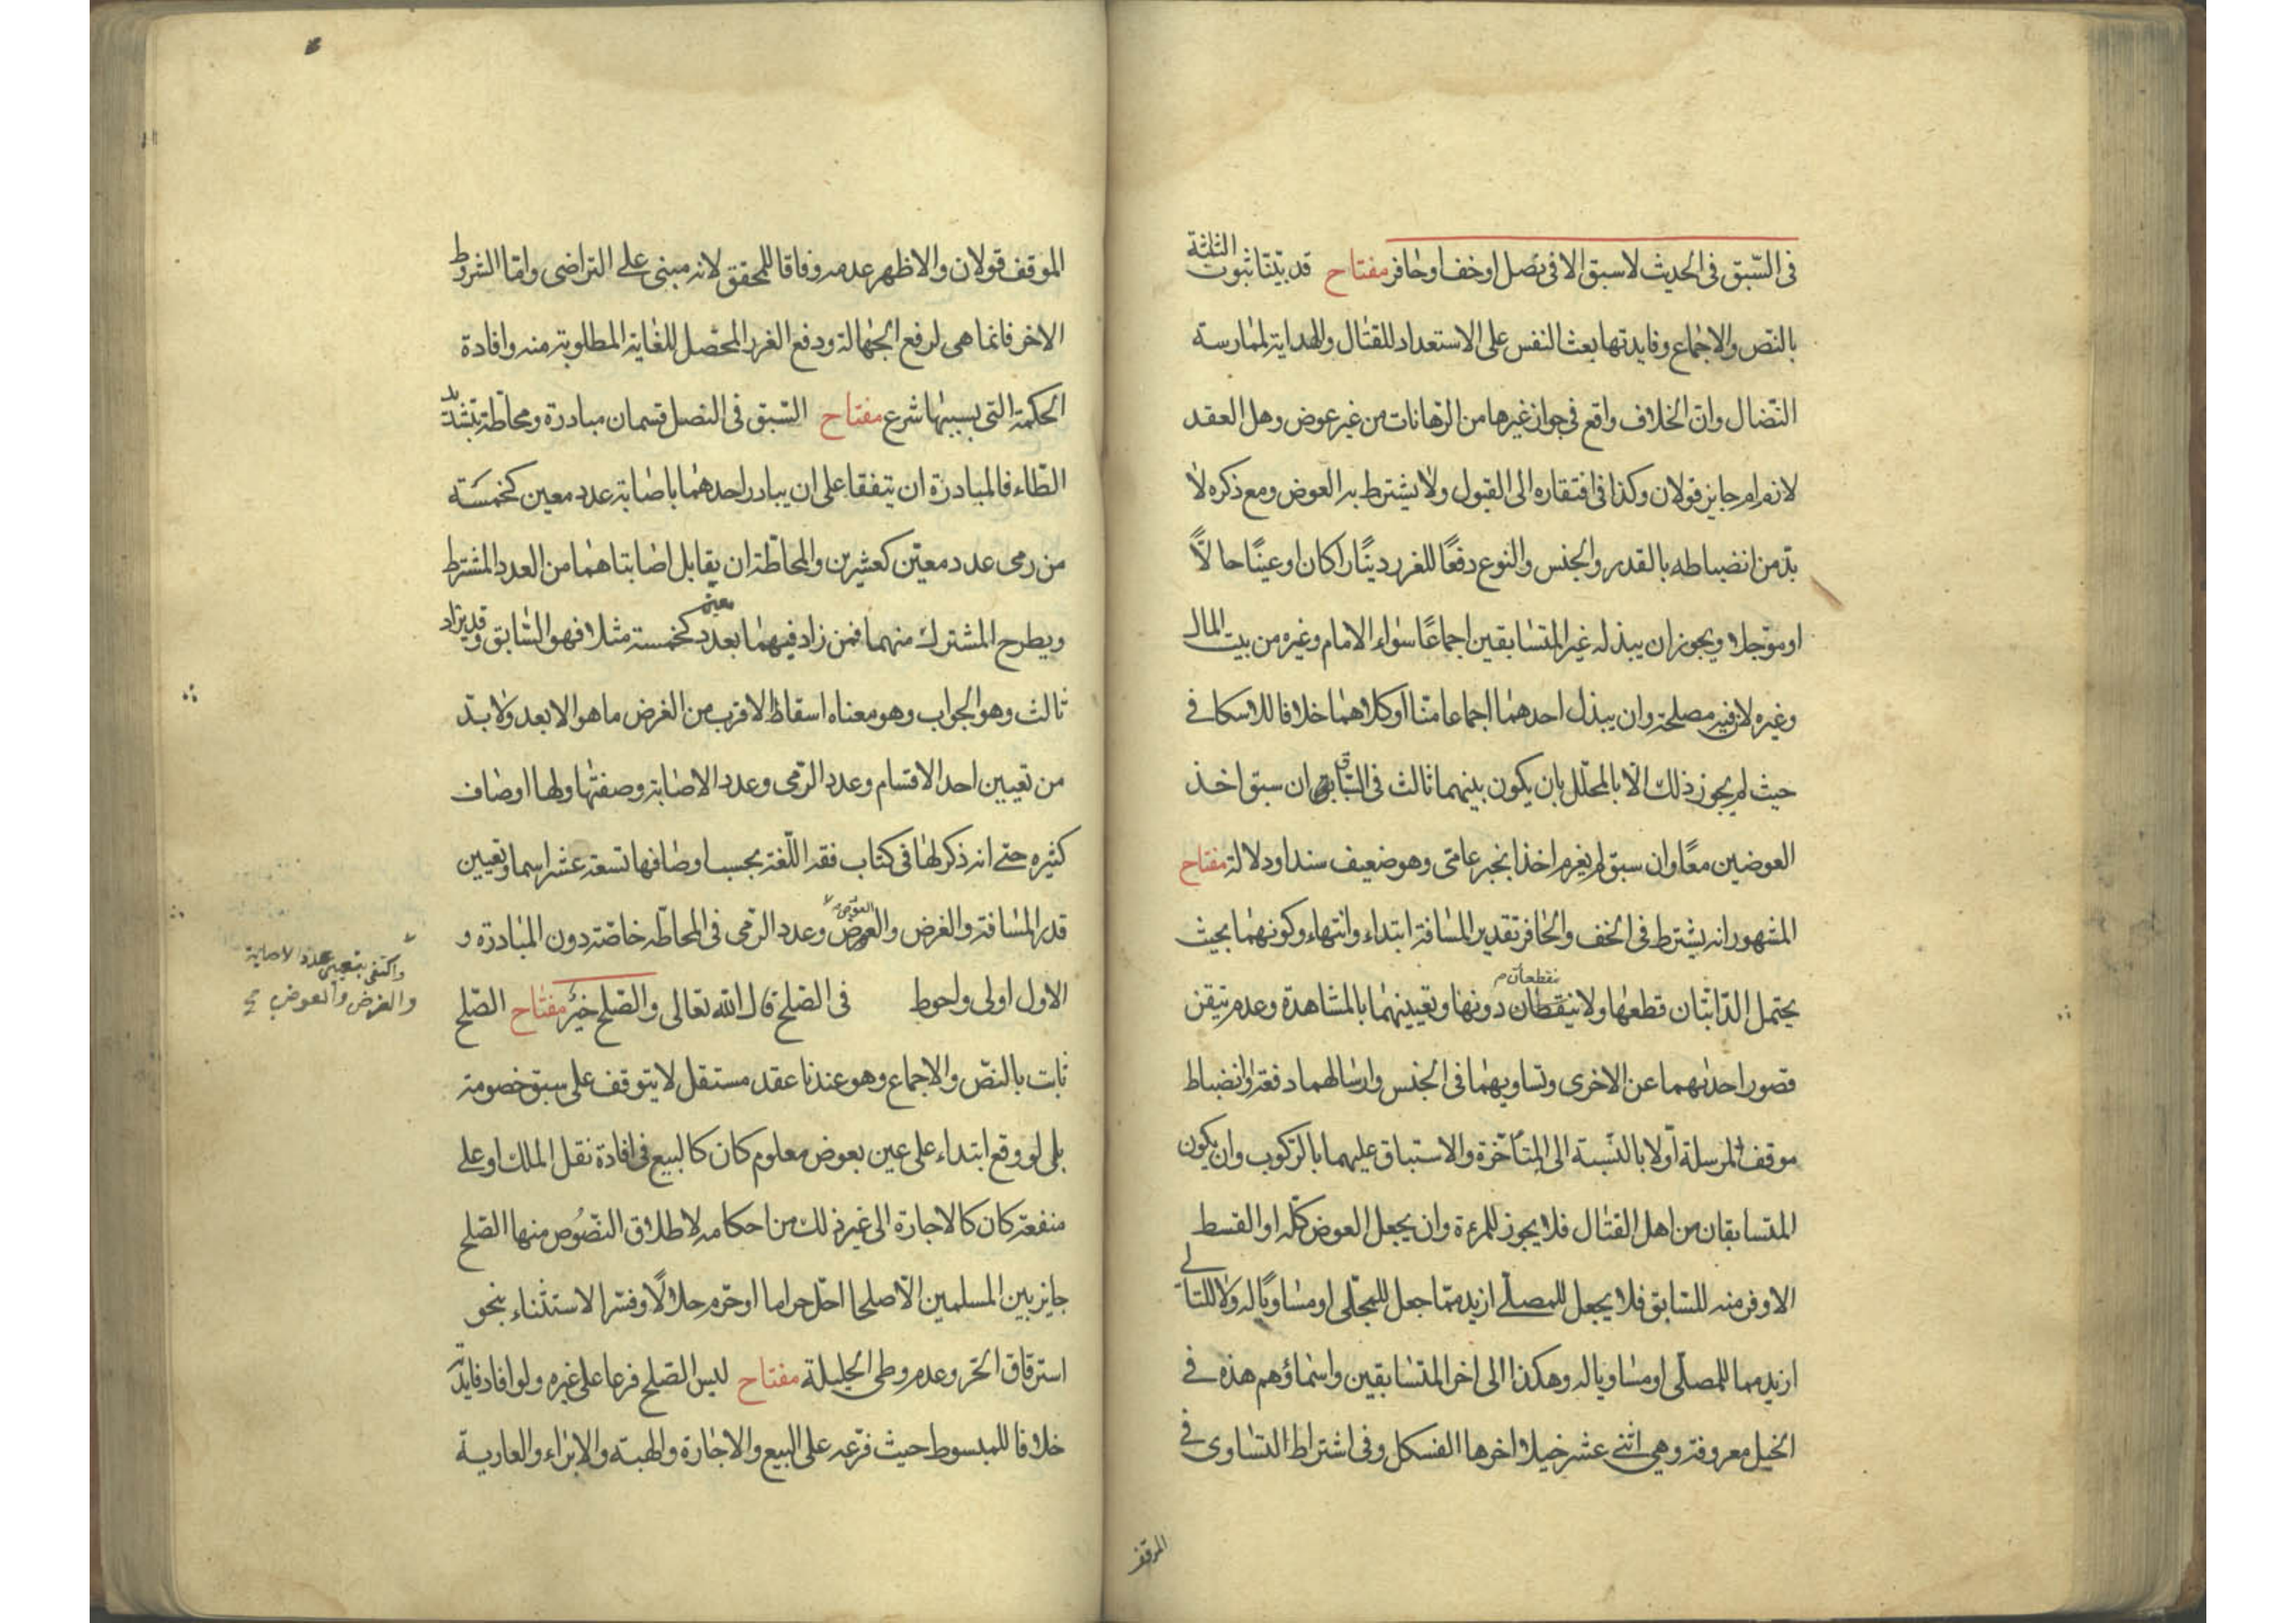 فى السّبق فى الحديث لا سبق الا فى نصل او خف او حافر مفتاح قد بيّنا ثبوت الثلثة
بالنّص والاجماع وفايدتها بعث النفس على الاستعداد للقتال والهداية لممارسة
النّضال وانّ الخلاف واقع فى جواز غيرها من الرّهانات من غير عوض وهل العقد
لازم ام جايز قولان وكذا فى افتقاره الى القبول ولا يشترط به العوض ومع ذكره لا
بدّ من انضباطه بالقدر والجنس والنوع دفعًا للغرر دينًا كان او عينًا حالاًّ
او موّجلا ويجوز ان يبذله غير المتسابقين اجماعًا سواء الامام وغيره من بيت المال
وغيره لان فيه مصلحة وان يبذل احدهما اجماعا منّا او كلاهما خلافا للاسكافى
حيث لم يجوز ذلك الّا بالمحلّل بان يكون بينهما ثالث فى السّباق ان سبق اخذ
العوضين معًا وان سبق لم يغرم اخذا بخبر عامّى وهو ضعيف سندا ودلالة مفتاح
المشهور انه يشترط فى الخف والحافر تقدير المسافة ابتداء وانتهاء وكونهما بحيث
يحتمل الدّابّتان قطعها ولا ينقطعان دونها وتعيينهما بالمشاهدة وعدم تيقن
قصور احدٰيهما عن الاخرى وتساويهما فى الجنس وارسالهما دفعة وانضباط
موقف المرسلة اوّلا بالنّسبة الى المتأخّرة والاستباق عليهما بالرّكوب وان يكون
المتسابقان من اهل القتال فلا يجوز للمرءة وان يجعل العوض كلّه او القسط
الاوفر منه للسّابق فلا يجعل للمصلّى ازيد ممّا جعل للمجلّى او مساويًا له ولا للتالى
ازيد مما للمصلّى او مساويا له وهكذا الى اخر المتسابقين واسماؤهم هذه فى
الخيل معروفة وهى اثنى عشر خيلا اخرها الفسكل وفى اشتراط التساوى فى
الموقف
الموقف قولان والاظهر عدمه وفاقا للمحقق لانه مبنى على التراضى وامّا الشروط
الاخر فانما هى لرفع الجهالة ودفع الغرر المحصّل للغاية المطلوبة منه وافادة
الحكمة التى بسببها شرع مفتاح السّبق فى النصل قسمان مبادرة ومحاطة بتشديد
الطّاء فالمبادرة ان يتفقا على ان يبادر احدهما باصابة عدد معين كخمسة
من رمى عدد معيّن كعشرين والمحاطّة ان يقابل اصابتاهما من العدد المشترط
ويطرح المشترك منهما فمن زاد فيهما بعدد معين كخمسة مثلا فهو السّابق وقد يزاد
ثالث وهو الجواب وهو معناه اسقاط الاقرب من الغرض ما هو الابعد ولا بدّ
من تعيين احد الاقسام وعدد الرّمى وعدد الاصابة وصفتها ولها اوصاف
كثيره حتى انه ذكر لها فى كتاب فقه اللّغة بحسب اوصافها تسعة عشر اسما وتعيين
قدر المسافة والغرض والعوض وعدد الرّمى فى المحاطّه خاصّة دون المبادرة و
واكتفى بتعيين عدد الاصابة
والغرض والعوض صح
الاول اولى واحوط فى الصّلح قال الله تعالى والصّلح خيرٌ مفتاح الصّلح
ثابت بالنصّ والاجماع وهو عندنا عقد مستقل لا يتوقف على سبق خصومة
بلى لو وقع ابتداء على عين بعوض معلوم كان كالبيع فى افادة نقل الملك او على
منفعة كان كالاجارة الى غير ذلك من احكامه لاطلاق النّصوُص منها الصّلح
جايز بين المسلمين الّا صلحا احلّ حراما او حّرم حلالًا وفسّر الاستثناء بنحو
استرقاق الحّر وعدم وطى الحليلة مفتاح ليس الصّلح فرعا على غيره ولو افاد فايدته
خلافا للمبسوط حيث فرّعه على البيع والاجارة والهبة والابراء والعارية